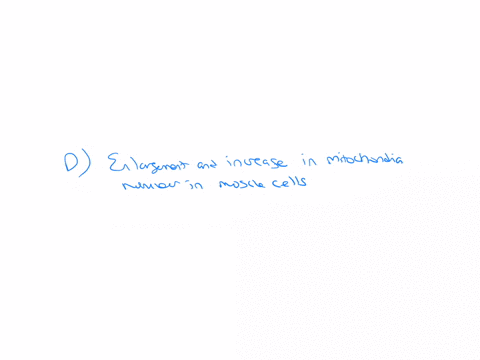 D) Enlargement and increase in mitochondria
number in muscle cells